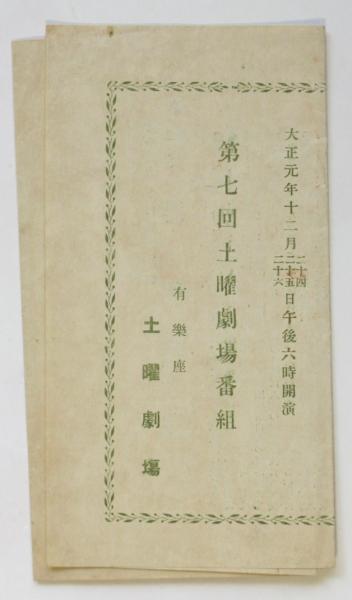 大正元年十二月二十四二十五二十六日午後六時開演
第七回土曜劇場番組
有樂座
土曜劇塲